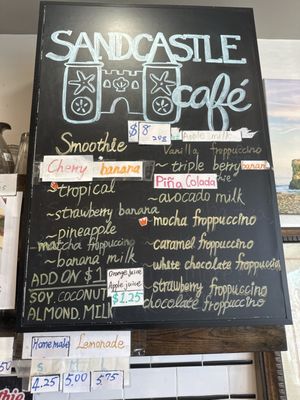 SANDCASTLE
café
$8
20oz
Smoothie
Vanilla froppuccino
Cherry banana
~ triple berry banana
~tropical
Piña Colada
~avocado milk
~strawberry banana
~mocha froppuccino
~pineapple
matcha froppuccino
~caramel froppuccino
~banana milk
~white chocolate froppuccino
ADD ON $1
Orange juice
Apple juice
$1.25
~strawberry froppuccino
SOY, COCONUT
chocolate froppuccino
ALMOND, MILK
Homemade Lemonade
S M L
4.25 5.00 5.75